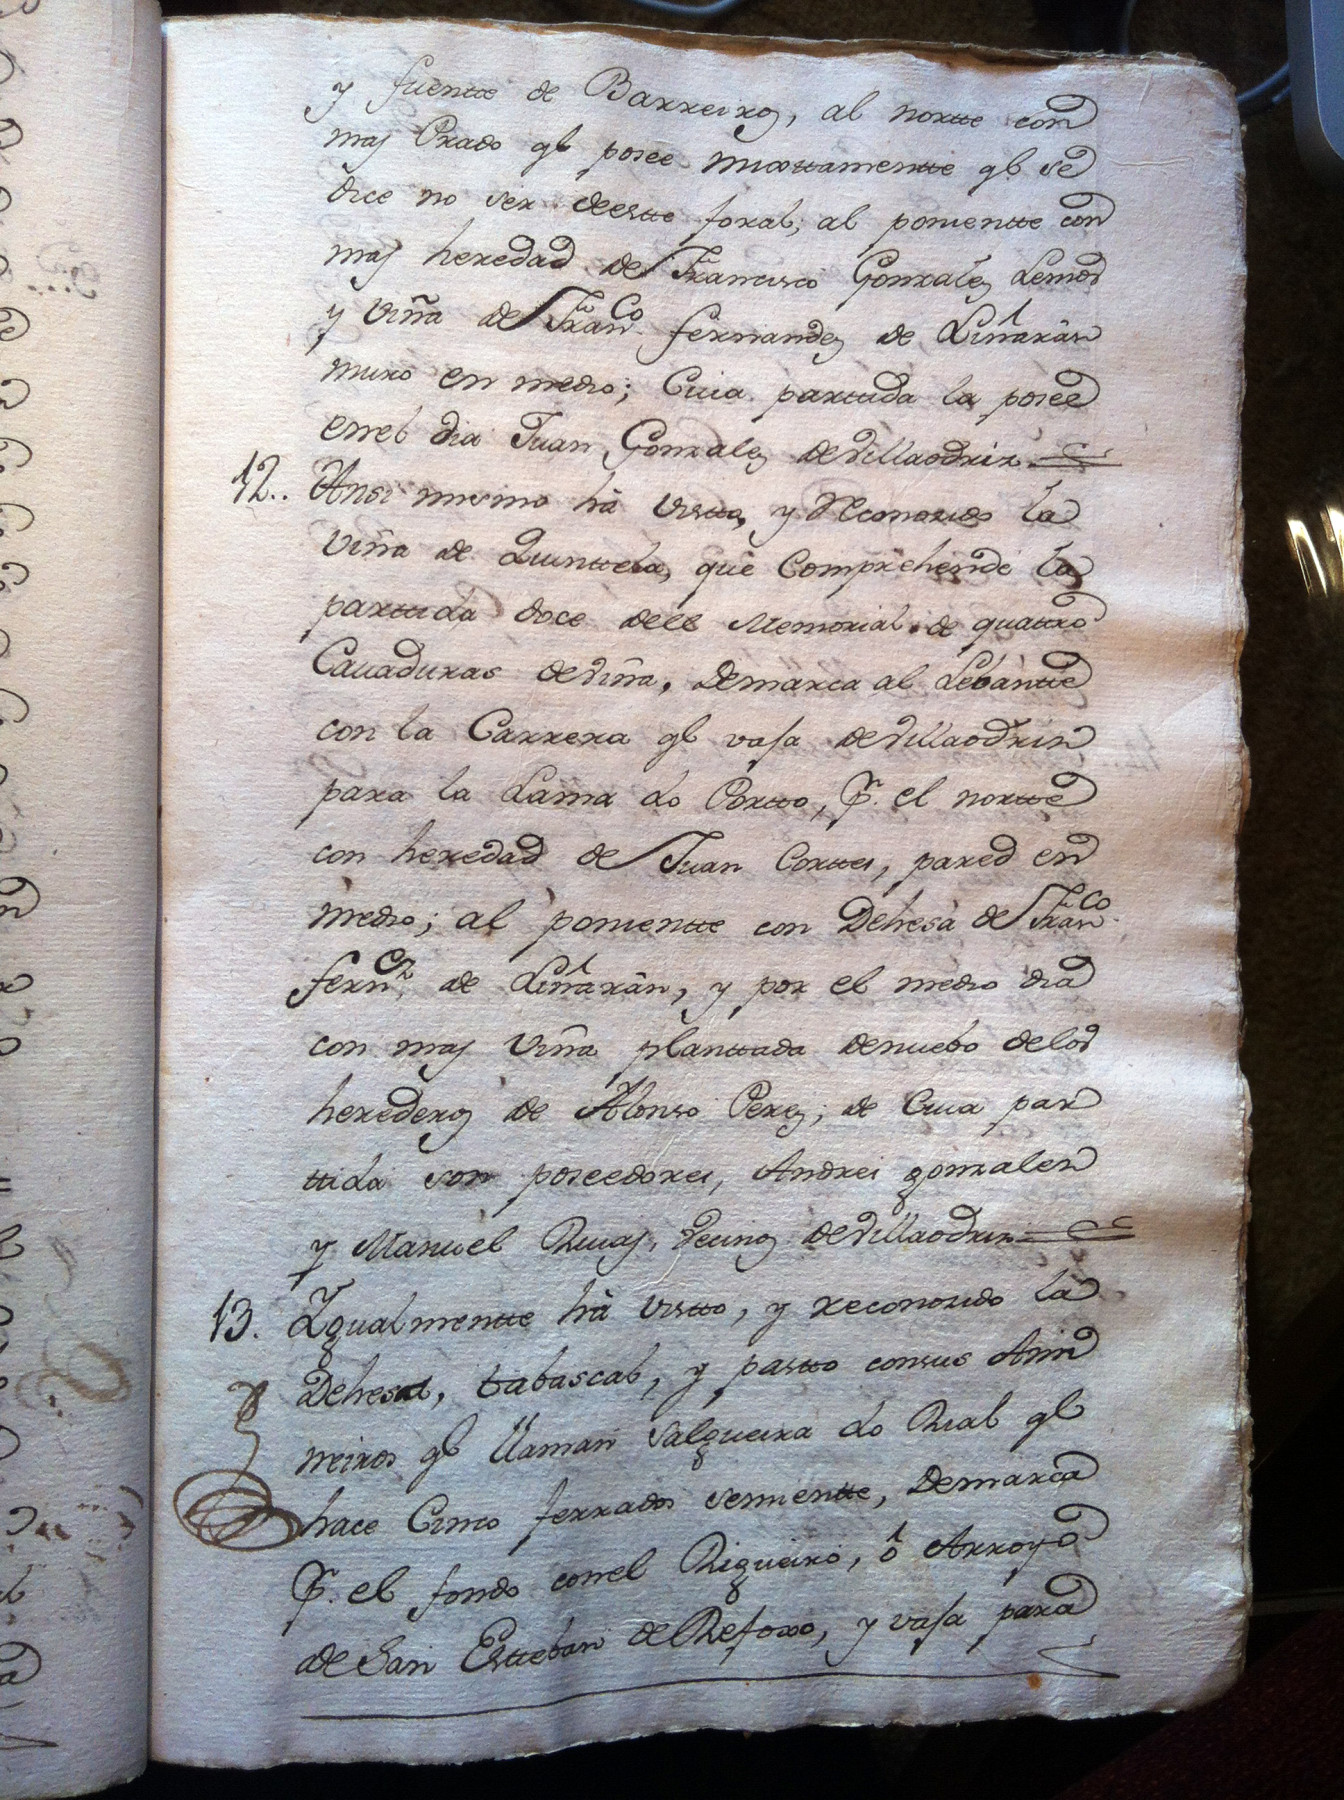 y fuentte de Barreiros, al nortte con
mas Prado qe posee mixttamentte qe se
dice no ser deestte foral; al ponientte con
mas heredad de Francisco Gonzales Lemos
y viña de Franco. fernandes de Liñarán
muro en medio; Cuia parttida la posee
enel dia Juan Gonzales de Villaodriz
12.. Ansi mismo há vistto, y Reconozido la
viña de Quinttela, que Comprehende la
parttida doce del Memorial de quattro
Cauaduras de viña, Demarca al Lebantte
con la Carrera qe vasa de Villaodriz
para la Lama do Portto, Pr. el nortte
con heredad de Juan Corttes, pared en
medio; al ponientte con Dehesa de Franco.
fernz. de Liñarán, y por el medio dia
con mas viña planttada denuebo delos
herederos de Alonso Perez; de Cuia par
ttida son poseedores, Andres gonzales
y Manuel Riuas, vecinos de Villaodriz
13. Igualmentte há vistto, y reconozido la
Dehesa, tabascal, y pastto consus Ami
neiros qe llaman Salgueira do Rial qe
hace Cinco ferrados semientte, Demarca
Pr. el fondo conel Rigueiro, ó Arroyo
de San Estteban de Refoxo, y vasa para